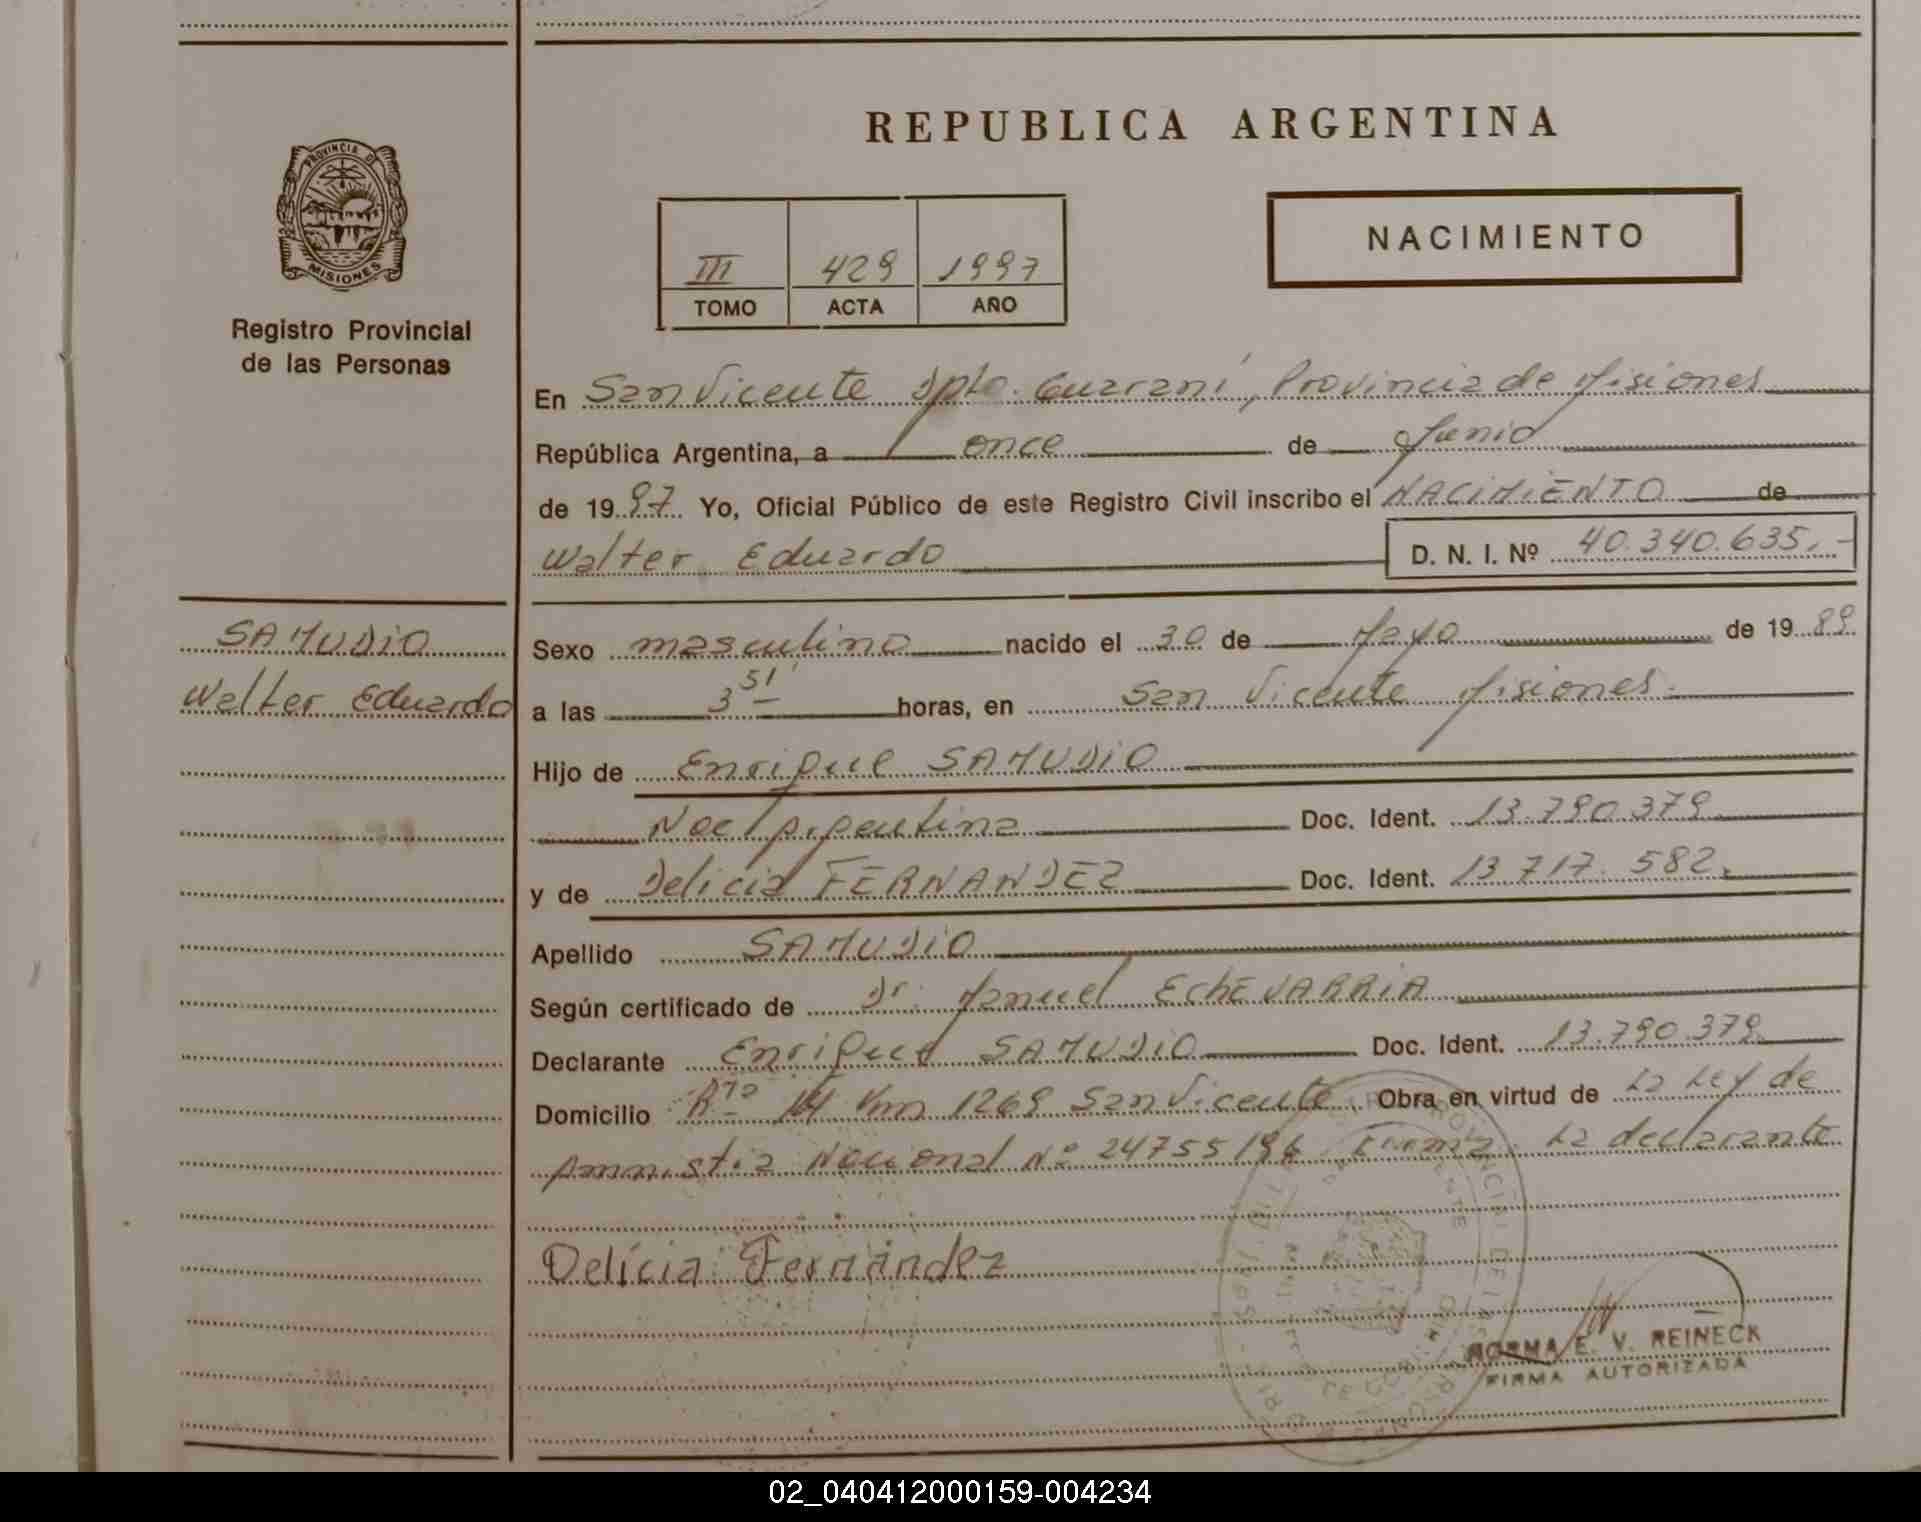 REPUBLICA ARGENTINA
PROVINCIA DE
MISIONES
Registro Provincial
de las Personas
III 429 1997
TOMO ACTA AÑO
NACIMIENTO
En San Vicente Dpto. Guaraní, Provincia de Misiones
República Argentina, a once de Junio
de 1997 Yo, Oficial Público de este Registro Civil inscribo el NACIMIENTO de
Walter Eduardo D. N. I. Nº 40.340.635.-
SAMUDIO
Walter Eduardo
Sexo masculino nacido el 30 de Mayo de 1989
a las 3 51 horas, en San Vicente Misiones.
Hijo de Enrique SAMUDIO
Nac. Argentina Doc. Ident. 13.790.379
y de Delicia FERNANDEZ Doc. Ident. 13.717.582.
Apellido SAMUDIO
Según certificado de Dr. Manuel EChEVARRIA
Declarante Enrique SAMUDIO Doc. Ident. 13.790.379
Domicilio Rta 14 Km 1269 San Vicente. Obra en virtud de La Ley de
Amnistia Nacional Nº 24755/96. Firma: La declarante
Delícia Fernández
NORMA E. V. REINECK
FIRMA AUTORIZADA
02_040412000159-004234